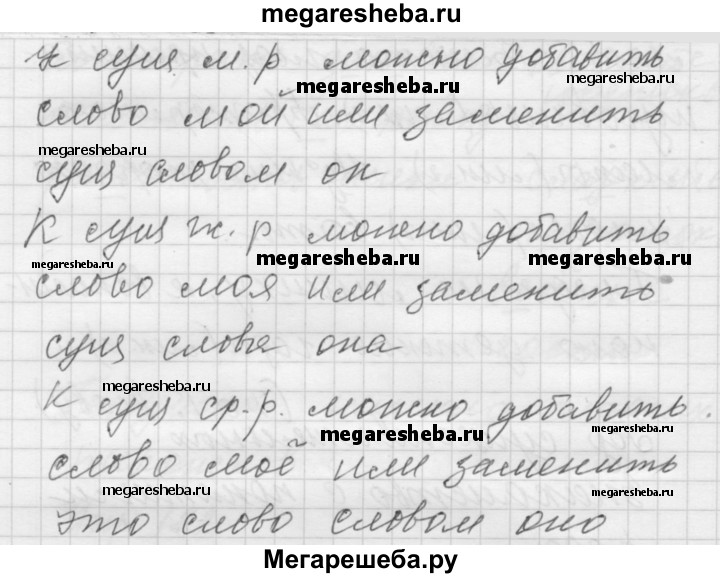 megaresheba.ru
К сущ м. р можно добавить
megaresheba.ru
megaresheba.ru
слово мой или заменить
megaresheba.ru
megaresheba.ru
сущ словом он
К сущ ж. р можно добавить
megaresheba.ru
megaresheba.ru
megaresheba.ru
слово моя или заменить
сущ слова она
megaresheba.ru
К сущ ср. р. можно добавить.
megaresheba.ru
megaresheba.ru
слово моё или заменить
megaresheba.ru
megaresheba.ru
это слово словом оно
Мегарешеба.ру